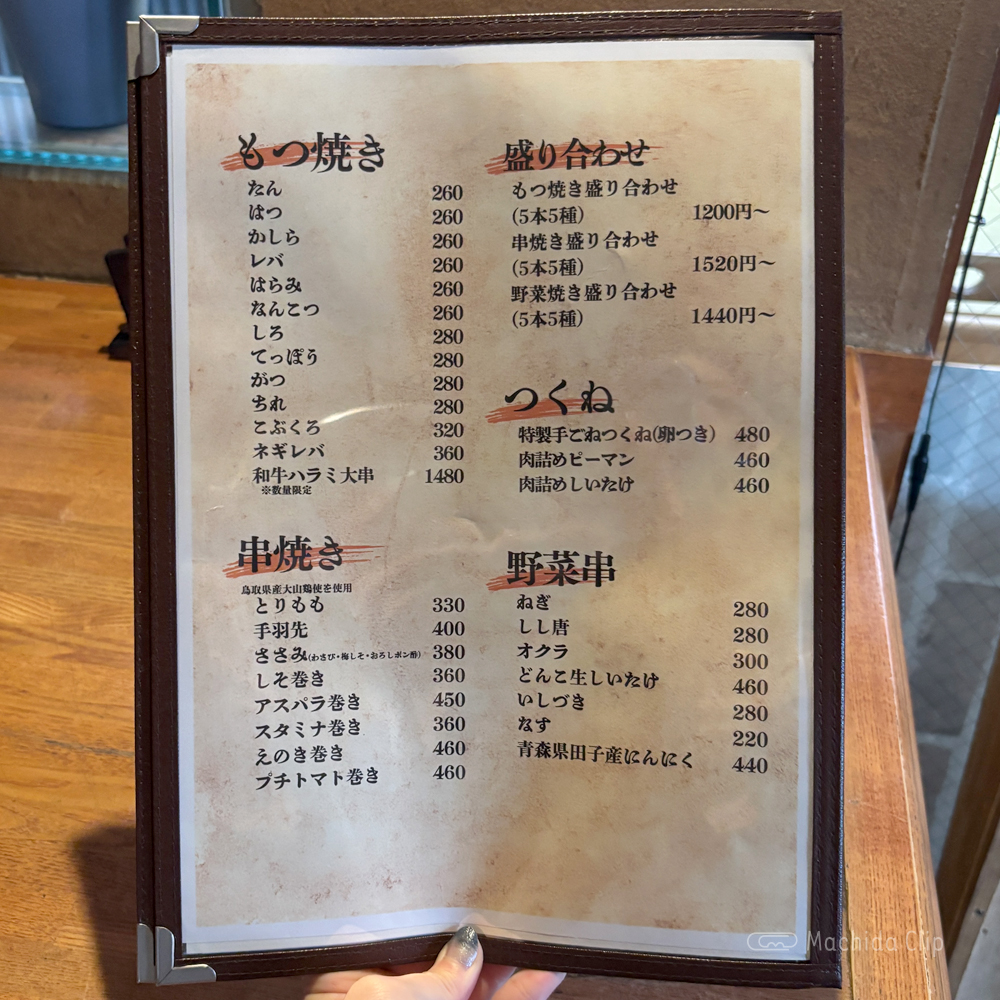 もつ焼き
たん 260
はつ 260
かしら 260
レバ 260
はらみ 260
なんこつ 260
しろ 280
てっぽう 280
がつ 280
ちれ 280
こぶくろ 320
ネギレバ 360
和牛ハラミ大串 1480
※数量限定
串焼き
鳥取県産大山鶏使を使用
とりもも 330
手羽先 400
ささみ(わさび・梅しそ・おろしポン酢) 380
しそ巻き 360
アスパラ巻き 450
スタミナ巻き 360
えのき巻き 460
プチトマト巻き 460
盛り合わせ
もつ焼き盛り合わせ
(5本5種) 1200円〜
串焼き盛り合わせ
(5本5種) 1520円〜
野菜焼き盛り合わせ
(5本5種) 1440円〜
つくね
特製手ごねつくね(卵つき) 480
肉詰めピーマン 460
肉詰めしいたけ 460
野菜串
ねぎ 280
しし唐 280
オクラ 300
どんこ生しいたけ 460
いしづき 280
なす 220
青森県田子産にんにく 440
Machida Clip